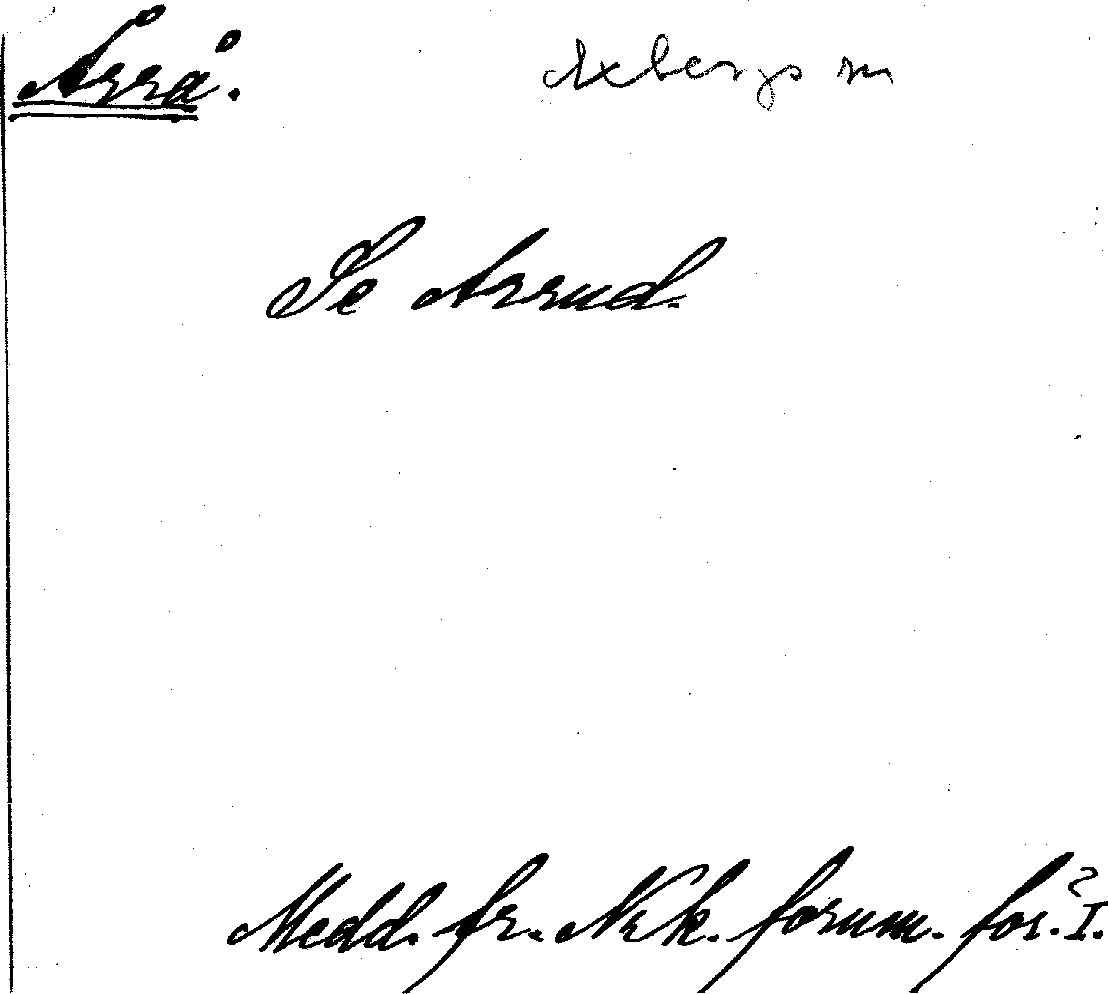 Årrå. Axbergs sn
Se Arrud.
Medd. fr. Nrk. fornm. för. I.